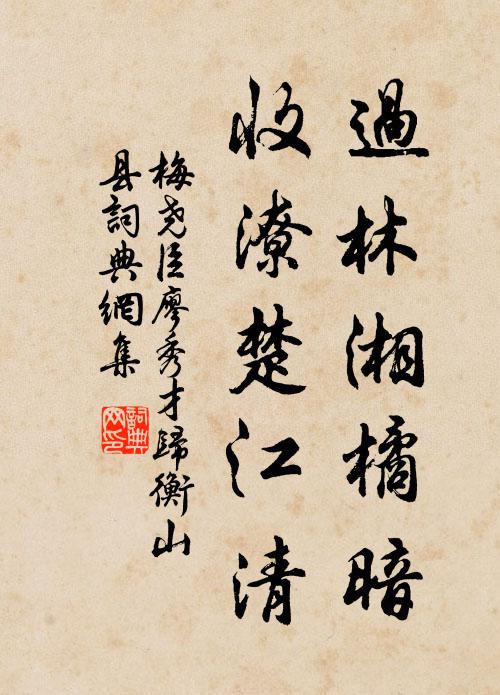 過林湘橘暗
收潦楚江清
梅尧臣廖秀才歸衡山
县詞典網集
詞典
网印